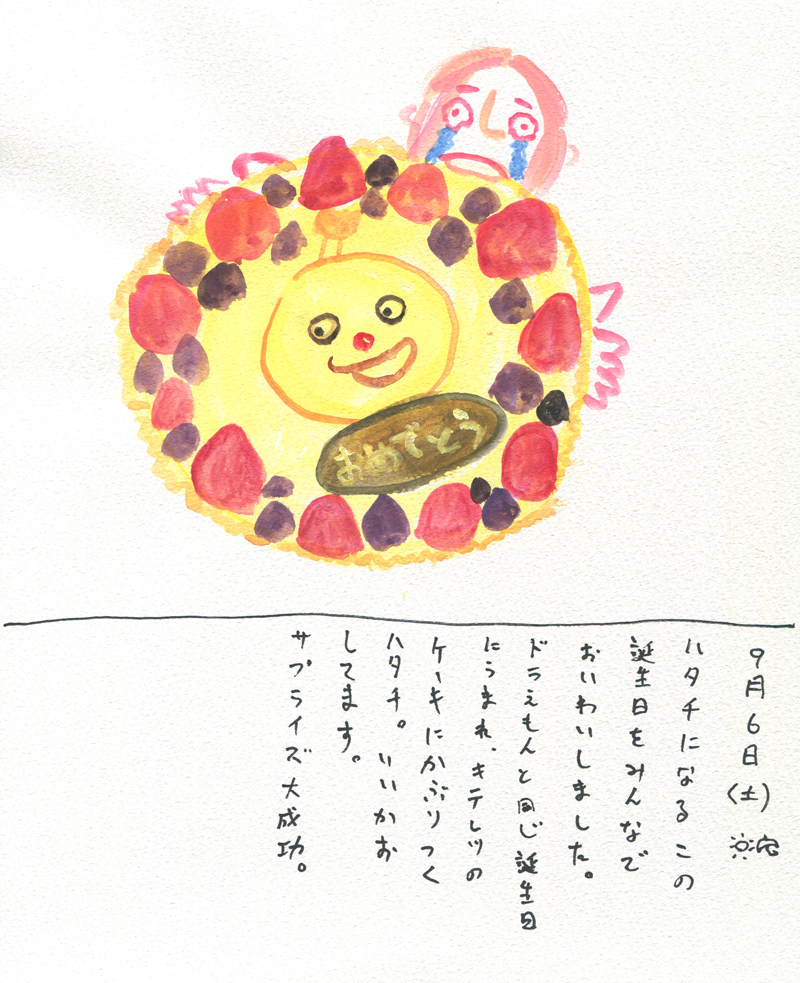 おめでとう
9月6日(土)
ハタチになるこの
誕生日をみんなで
おいわいしました。
ドラえもんと同じ誕生日
にうまれ、キテレツの
ケーキにかぶりつく
ハタチ。いいかお
してます。
サプライズ大成功。